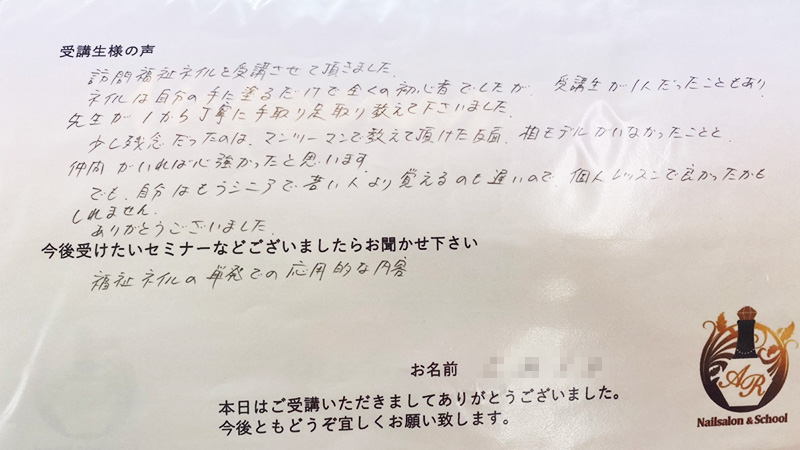 受講生様の声
訪問福祉ネイルを受講させて頂きました。
ネイルは自分の手に塗るだけで全くの初心者でしたが、受講生が1人だったこともあり
先生が1から丁寧に手取り足取り教えて下さいました。
少し残念だったのは、マンツーマンで教えて頂けた反面、相モデルがいなかったことと、
仲間がいれば心強かったと思います。
でも、自分はもうシニアで若い人より覚えるのも遅いので、個人レッスンで良かったかも
しれません。
ありがとうございました。
今後受けたいセミナーなどございましたらお聞かせ下さい
福祉ネイルの単発での応用的な内容
お名前
本日はご受講いただきましてありがとうございました。
今後ともどうぞ宜しくお願い致します。
AR
Nailsalon & School